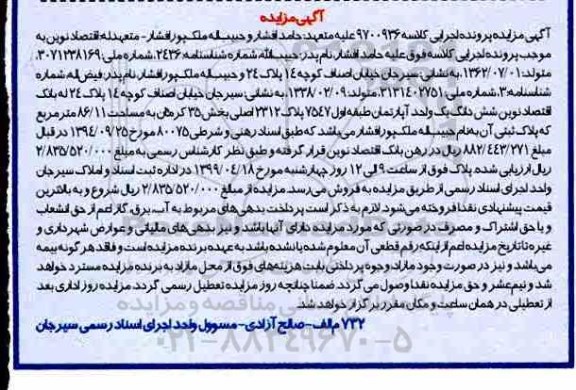 آگهی مزایده
آگهی مزایده پرونده اجرایی کلاسه ۹۷۰۰۹۳۶ علیه متعهد: حامد افشار و حبیب اله ملک پور افشار - متعهدله اقتصاد نوین به
موجب پرونده اجرایی کلاسه فوق علیه حامد افشار نام پدر: حبیب الله شماره شناسنامه: ۲۴۳۶، شماره ملی: ۳۰۷۱۲۳۸۱۶۹،
متولد: ۱۳۶۲/۰۷/۰۱، به نشانی: سیرجان خیابان اصناف کوچه ۱۴ پلاک ۲۴ و حبیب اله ملک پور افشار نام پدر: فیض اله شماره
شناسنامه: ۳، شماره ملی: ۳۱۳۱۴۰۲۷۵۱، متولد: ۱۳۳۸/۰۲/۰۹، به نشانی: سیرجان خیابان اصناف کوچه ۱۴ پلاک ۲۴ له بانک
اقتصاد نوین شش دانگ یک واحد آپارتمان طبقه اول ۷۵۴۷ پلاک ۲۳۱۲ اصلی بخش ۳۵ کرمان به مساحت ۸۶/۱۱ متر مربع
که پلاک ثبتی آن به نام حبیب اله ملک پور افشار می باشد که طبق اسناد رهنی و شرطی ۸۰۰۷۵ مورخ ۱۳۹۴/۰۹/۲۵ در قبال
مبلغ ۸۸۲/۴۴۳/۲۷۱ ریال در رهن بانک اقتصاد نوین قرار گرفته و طبق نظر کارشناس رسمی به مبلغ ۲/۸۳۵/۵۲۰/۰۰۰
ریال ارزیابی شده، پلاک فوق از ساعت ۹ الی ۱۲ روز چهارشنبه مورخ ۱۳۹۹/۰۴/۱۸ در اداره ثبت اسناد و املاک سیرجان
واحد اجرای اسناد رسمی از طریق مزایده به فروش می رسد. مزایده از مبلغ ۲/۸۳۵/۵۲۰/۰۰۰ ریال شروع و به بالاترین
قیمت پیشنهادی نقدا فروخته می شود. لازم به ذکر است پرداخت بدهی های مربوط به آب، برق، گاز اعم از حق انشعاب
و یا حق اشتراک و مصرف در صورتی که مورد مزایده دارای آنها باشد و نیز بدهی های مالیاتی و عوارض شهرداری و
غیره تا تاریخ مزایده اعم از اینکه رقم قطعی آن معلوم شده یا نشده باشد به عهده برنده مزایده است و فاقد هر گونه بیمه
می باشد و نیز در صورت وجود مازاد وجوه پرداختی بابت هزینه های فوق از محل مازاد به برنده مزایده مسترد خواهد
شد و نیم عشر و حق مزایده نقدا وصول می گردد. ضمنا چنانچه روز مزایده تعطیل رسمی گردد، مزایده روز اداری بعد
از تعطیلی در همان ساعت و مکان مقرر برگزار خواهد شد.
۷۳۲ م الف - صالح آزادی - مسوول واحد اجرای اسناد رسمی سیرجان
۰۲۱-۸۸۳۴۹۶۷۰-۵